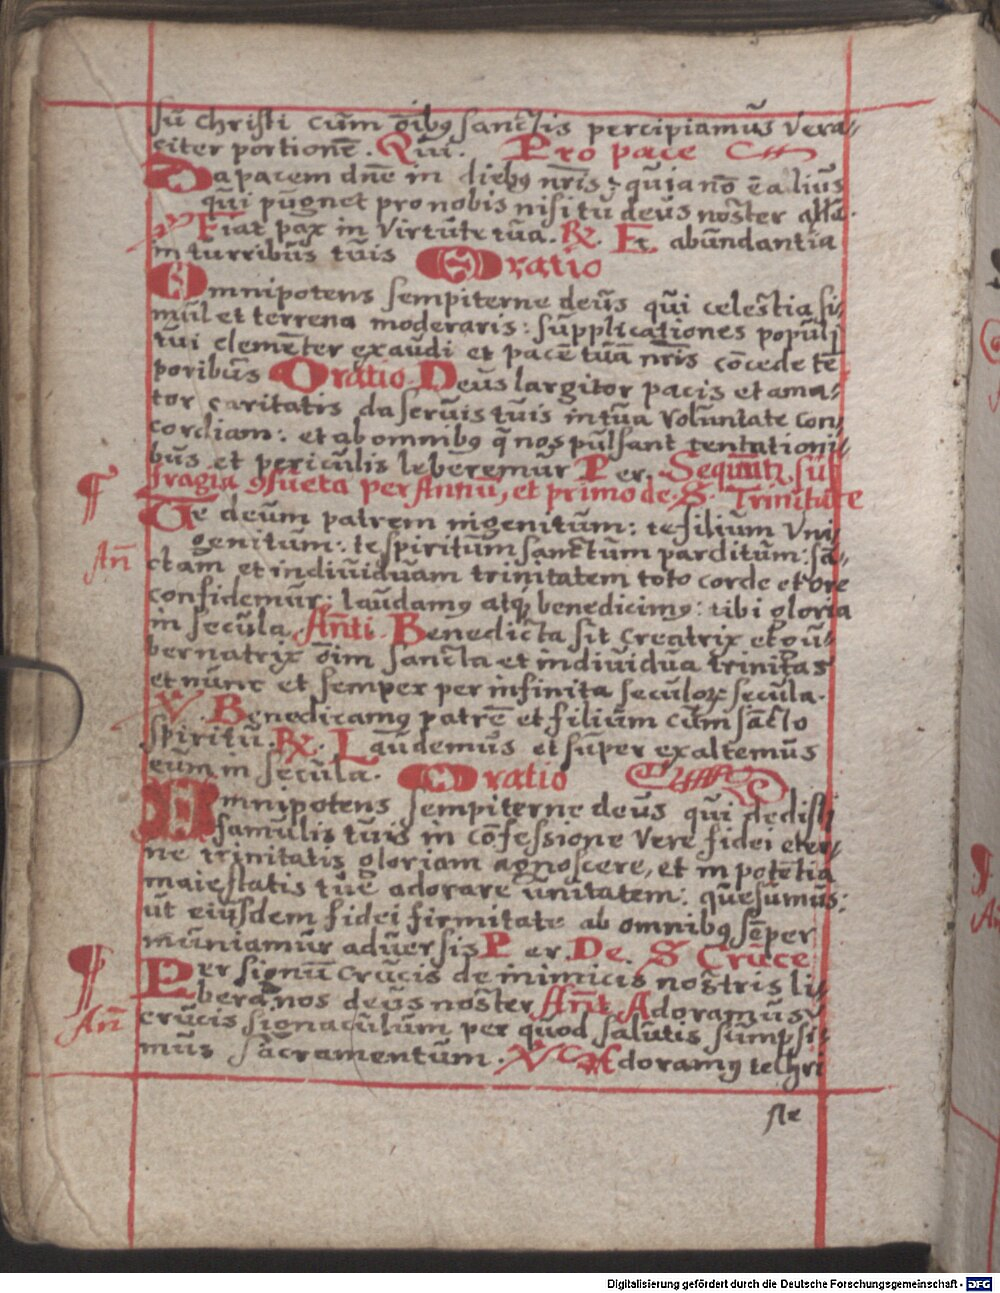 sū christi cum ōibꝰ sanctis percipiamus vera-
citer portionē. Qui. Pro pace
Da pacem dn̄e in diebꝰ nr̄is ; quia nō ē alius
qui pugnet pro nobis nisi tu deus noster alla.
℣ Fiat pax in virtute tua. ℟. Et abundantia
in turribus tuis Oratio
Omnipotens sempiterne deus qui celestia si-
mul et terrena moderaris : supplicationes populj
tui clemēter exaudi et pacē tuā nr̄is cōcede tē
poribus Oratio. Deus largitor pacis et ama-
tor caritatis da seruis tuis in tua voluntate con-
cordiam : et ab omnibꝰ q̄ nos pulsant tentationi-
bus et periculis leberemur Per. Sequūtꝛ suf
fragia ꝯsueta per Annū, et primo de S. Trinitate
¶ Te deum patrem ingenitum : te filium vni
Añ genitum : te spiritum sanctum parclitum : sā-
ctam et indiuiduam trinitatem toto corde et ore
confidemur : laudamꝰ atqꝫ benedicimꝰ : tibi gloria
in secula Añti. Benedicta sit creatrix et gu-
bernatrix ōim sancta et indiuidua trinitas
et nunc et semper per infinita seculoꝝ secula.
℣. Benedicamꝰ patrē et filium cum sācto
spiritu. ℟. Laudemus et super exaltemus
eum in secula. Oratio
Omnipotens sempiterne deus qui dedisti
famulis tuis in cōfessione vere fidei eter-
ne trinitatis gloriam agnoscere, et in potētia
maiestatis tue adorare unitatem : quesumus :
ut eiusdem fidei firmitate ab omnibꝰ sēper
muniamur aduersis Per. De. S. Cruce
¶ Per signū crucis de inimicis nostris li-
Añ bera nos deus noster Añt Adoramus
crucis signaculum per quod salutis sumpsi-
mus sacramentum. ℣ Adoramꝰ te chri
ste
Digitalisierung gefördert durch die Deutsche Forschungsgemeinschaft - DFG